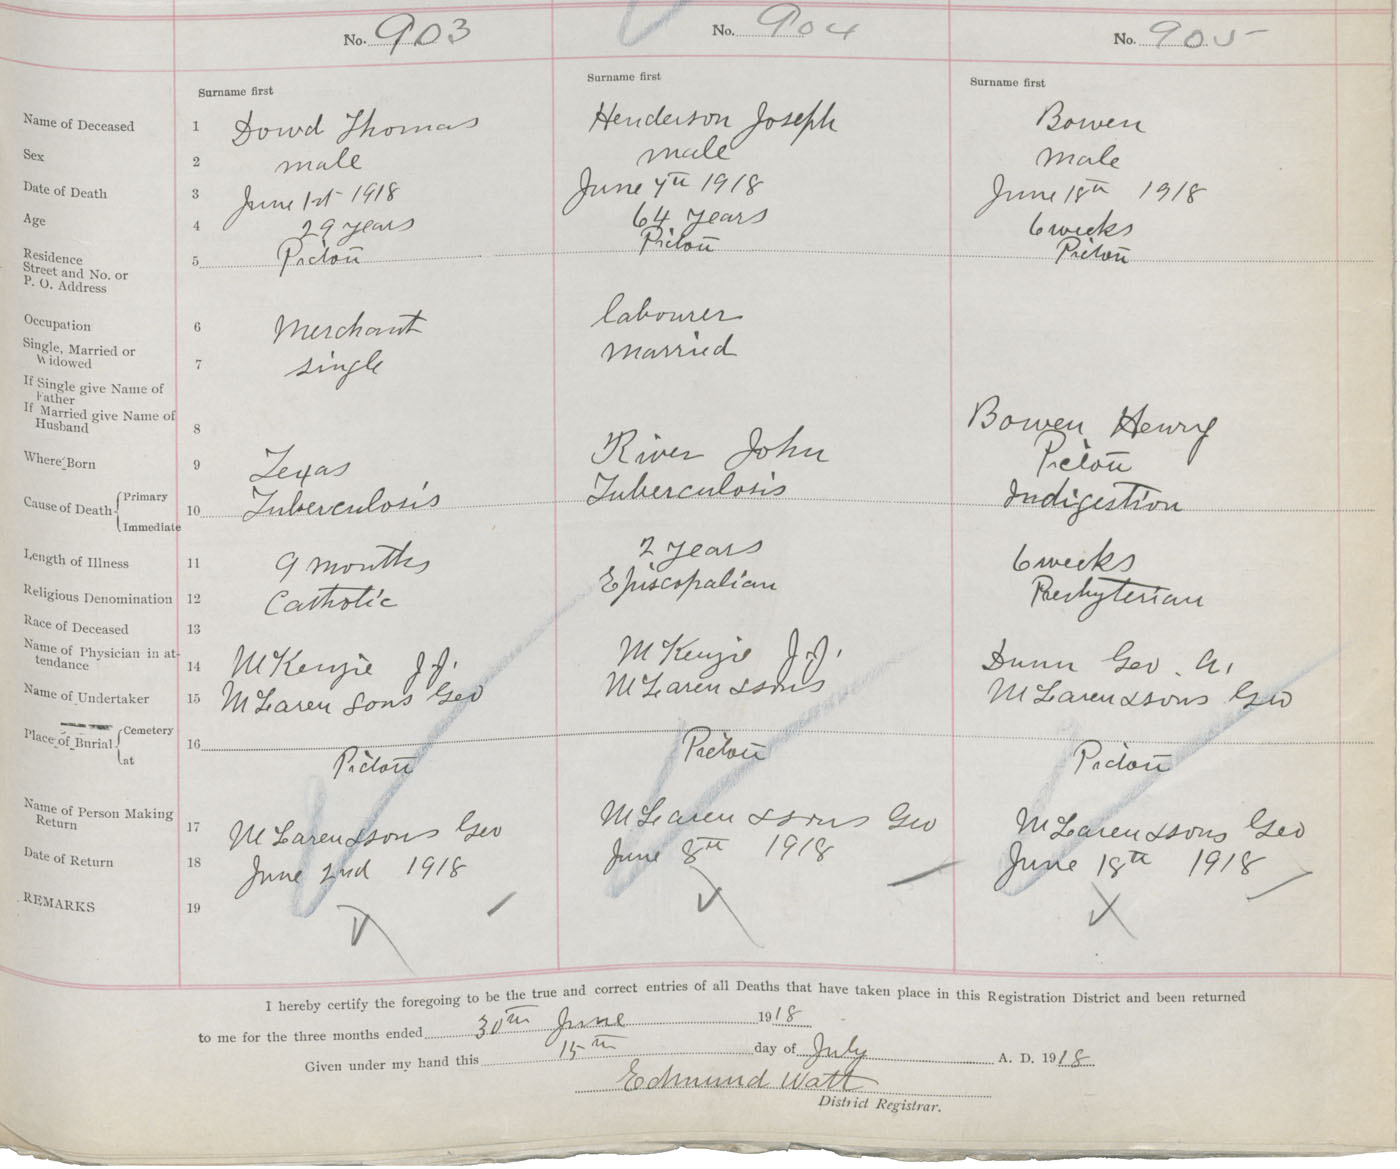 No. 903 No. 904 No. 905
Surname first Surname first Surname first
Name of Deceased 1 Dowd Thomas Henderson Joseph Bowen
Sex 2 male male male
Date of Death 3 June 1st 1918 June 7th 1918 June 18th 1918
Age 4 29 years 64 years 6 weeks
Residence
Street and No. or
P. O. Address 5 Pictou Pictou Pictou
Occupation 6 Merchant labourer
Single, Married or
Widowed 7 single married
If Single give Name of
Father
If Married give Name of
Husband 8 Bowen Henry
Where Born 9 Texas River John Pictou
Cause of Death { Primary
Immediate 10 Tuberculosis Tuberculosis Indigestion
Length of Illness 11 9 months 2 years 6 weeks
Religious Denomination 12 Catholic Episcopalian Presbyterian
Race of Deceased 13
Name of Physician in at-
tendance 14 McKenzie J.J. McKenzie J.J. Dunn Geo. A.
Name of Undertaker 15 McLaren Sons Geo McLaren & sons McLaren & sons Geo
Place of Burial { Cemetery
at 16 Pictou Pictou Pictou
Name of Person Making
Return 17 McLaren & sons Geo McLaren & sons Geo McLaren & sons Geo
Date of Return 18 June 2nd 1918 June 8th 1918 June 18th 1918
REMARKS 19
I hereby certify the foregoing to be the true and correct entries of all Deaths that have taken place in this Registration District and been returned
to me for the three months ended 30th June 1918
Given under my hand this 15th day of July A. D. 1918
Edmund Watt
District Registrar.